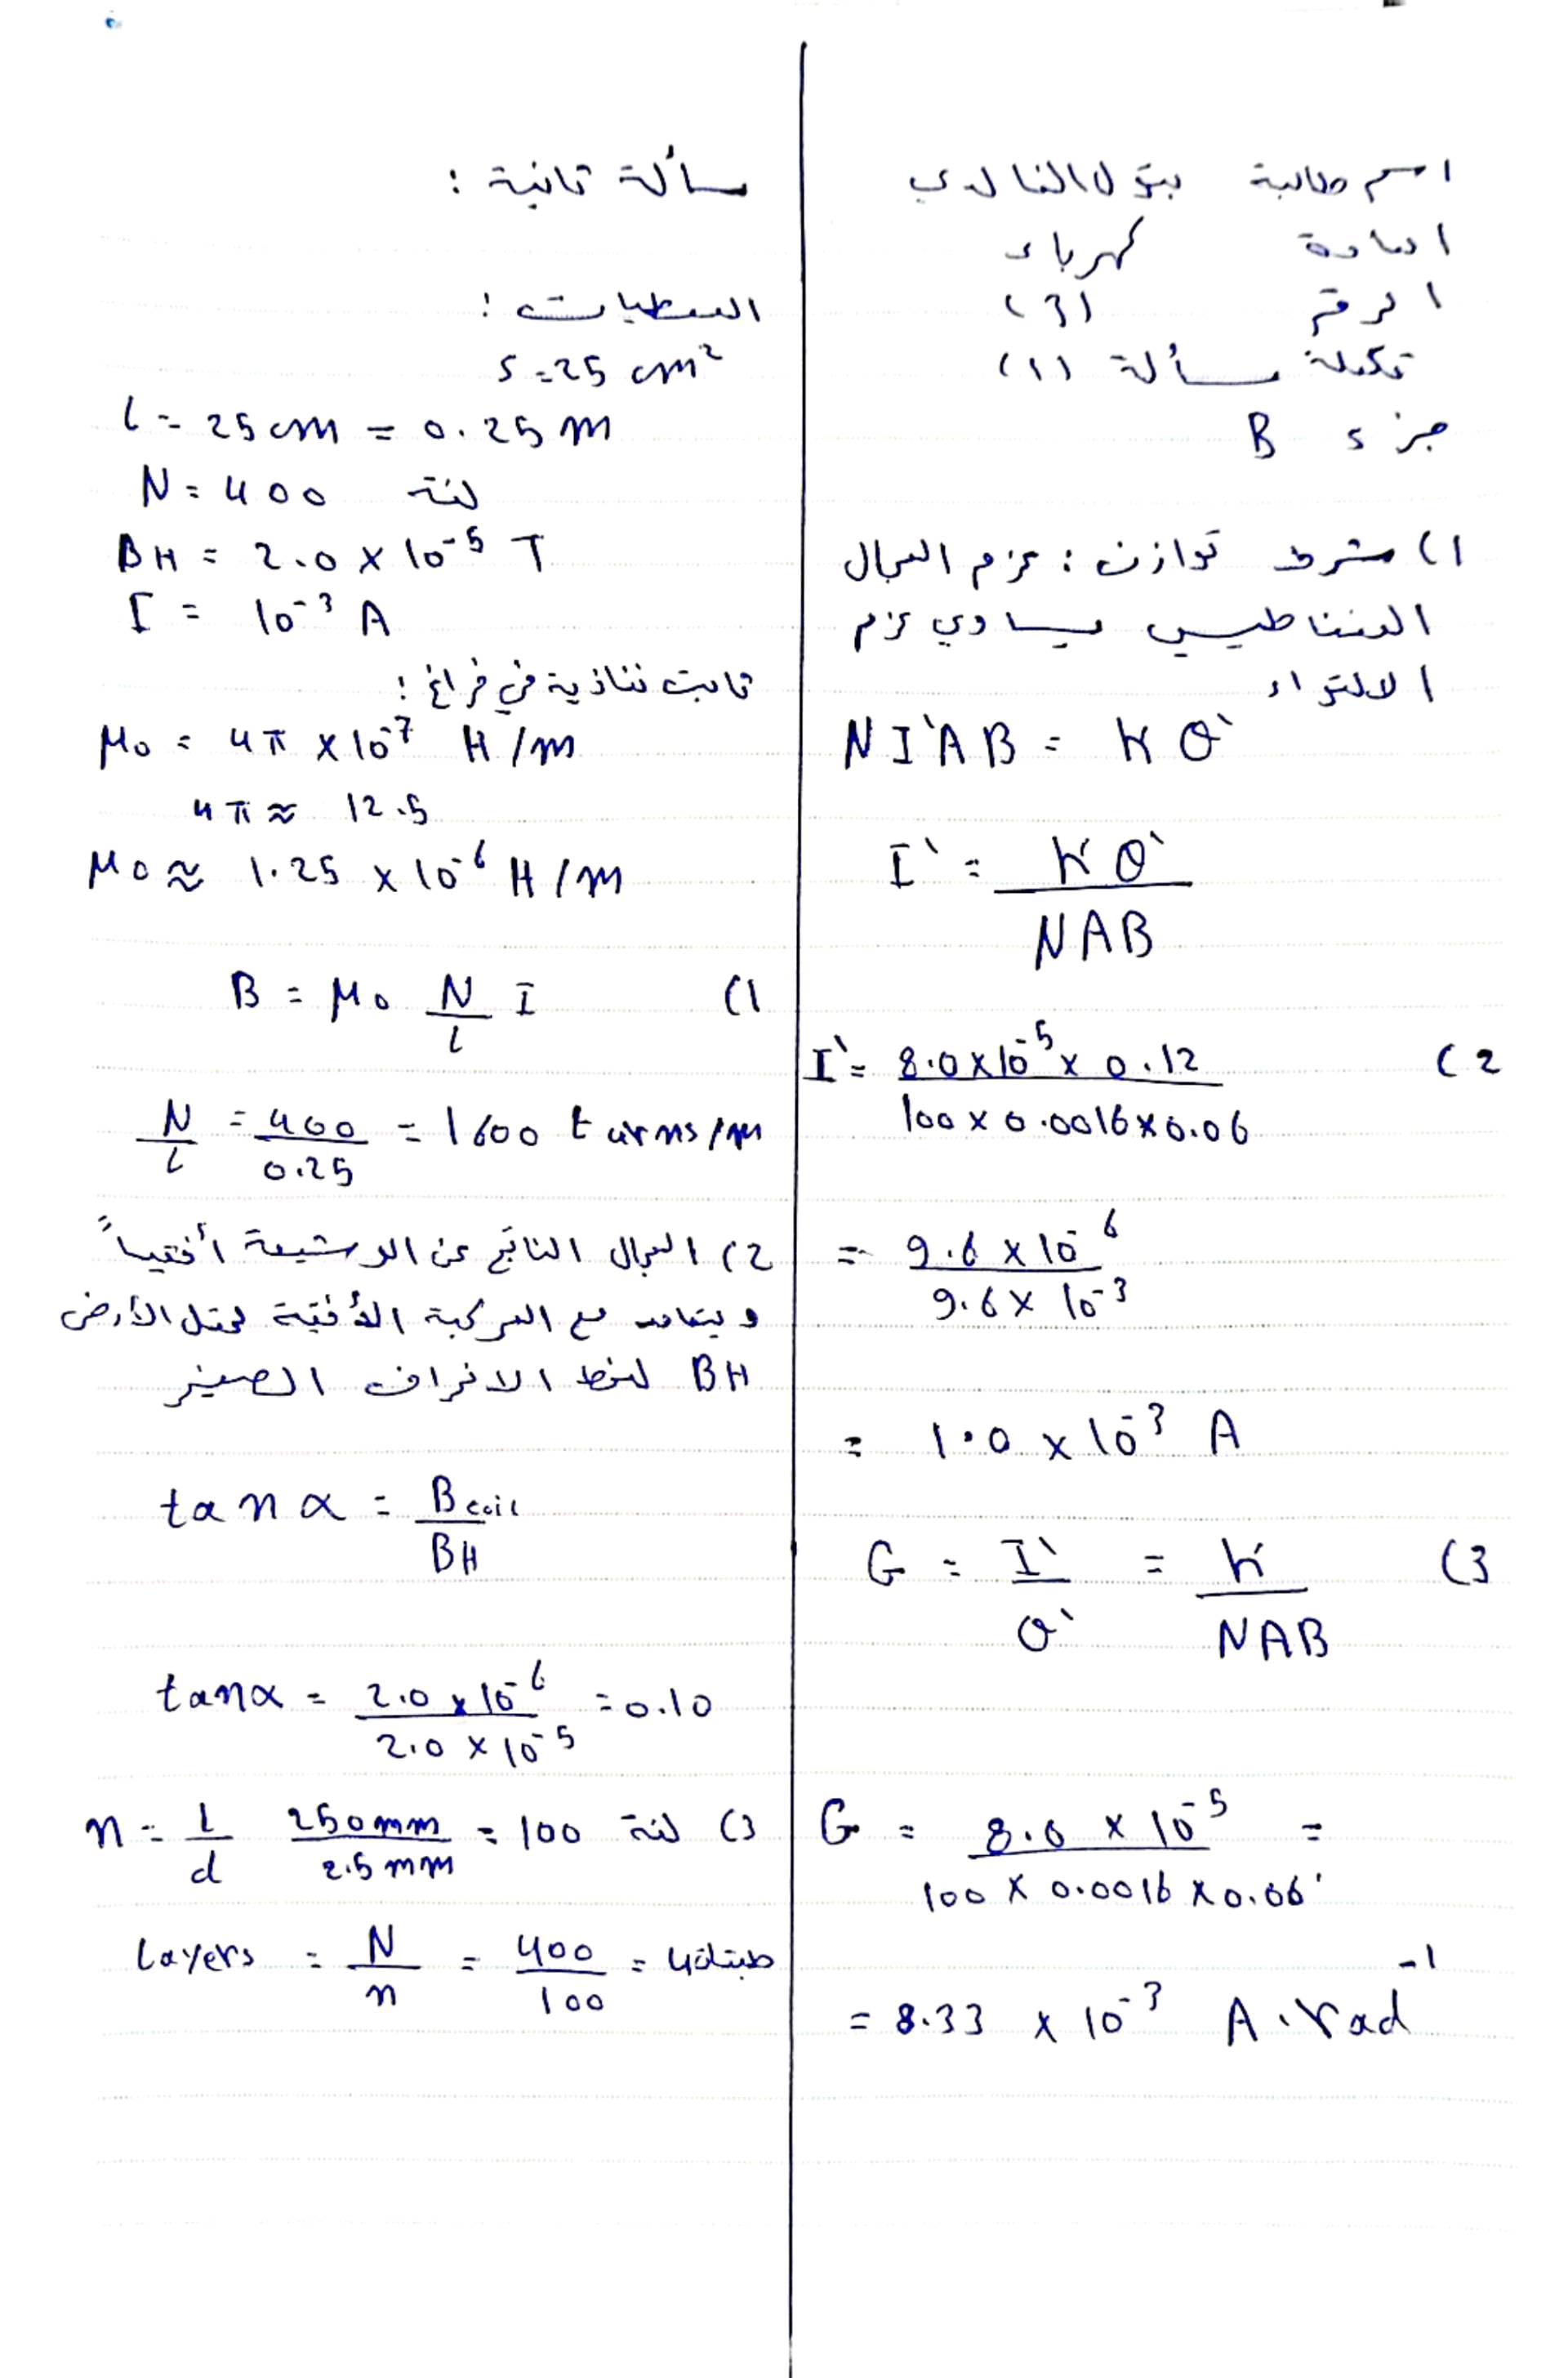 اسم طالبة بتول الخالدي
المادة كهرباء
الرقم (3)
تكملة مسألة (1)
جزء B
1) شرط توازن : عزم المجال
المغناطيسي يساوي عزم
الالتواء
N I`A B = K θ`
I` = K θ` / NAB
2) I` = 8.0 x 10^-5 x 0.12 / 100 x 0.0016 x 0.06
= 9.6 x 10^-6 / 9.6 x 10^-3
= 1.0 x 10^-3 A
3) G = I` / θ` = K / NAB
G = 8.0 x 10^-5 / 100 x 0.0016 x 0.06 =
= 8.33 x 10^-3 A.rad^-1
مسألة ثانية :
المعطيات :
S = 25 cm²
l = 25 cm = 0.25 m
N = 400 لفة
BH = 2.0 x 10^-5 T
I = 10^-3 A
ثابت نفاذية في فراغ :
μ0 = 4π x 10^-7 H/m
4π ≈ 12.5
μ0 ≈ 1.25 x 10^-6 H/m
1) B = μ0 N/l I
N/l = 400/0.25 = 1600 turns/m
2) المجال الناتج عن الوشيعة أفقياً
ويتعامد مع المركبة الأفقية لحقل الأرض
BH الانحراف الصغير
tan α = Bcoil / BH
tan α = 2.0 x 10^-6 / 2.0 x 10^-5 = 0.10
3) n = l/d 250mm / 2.5mm = 100 لفة
Layers = N/n = 400/100 = 4 طبقات